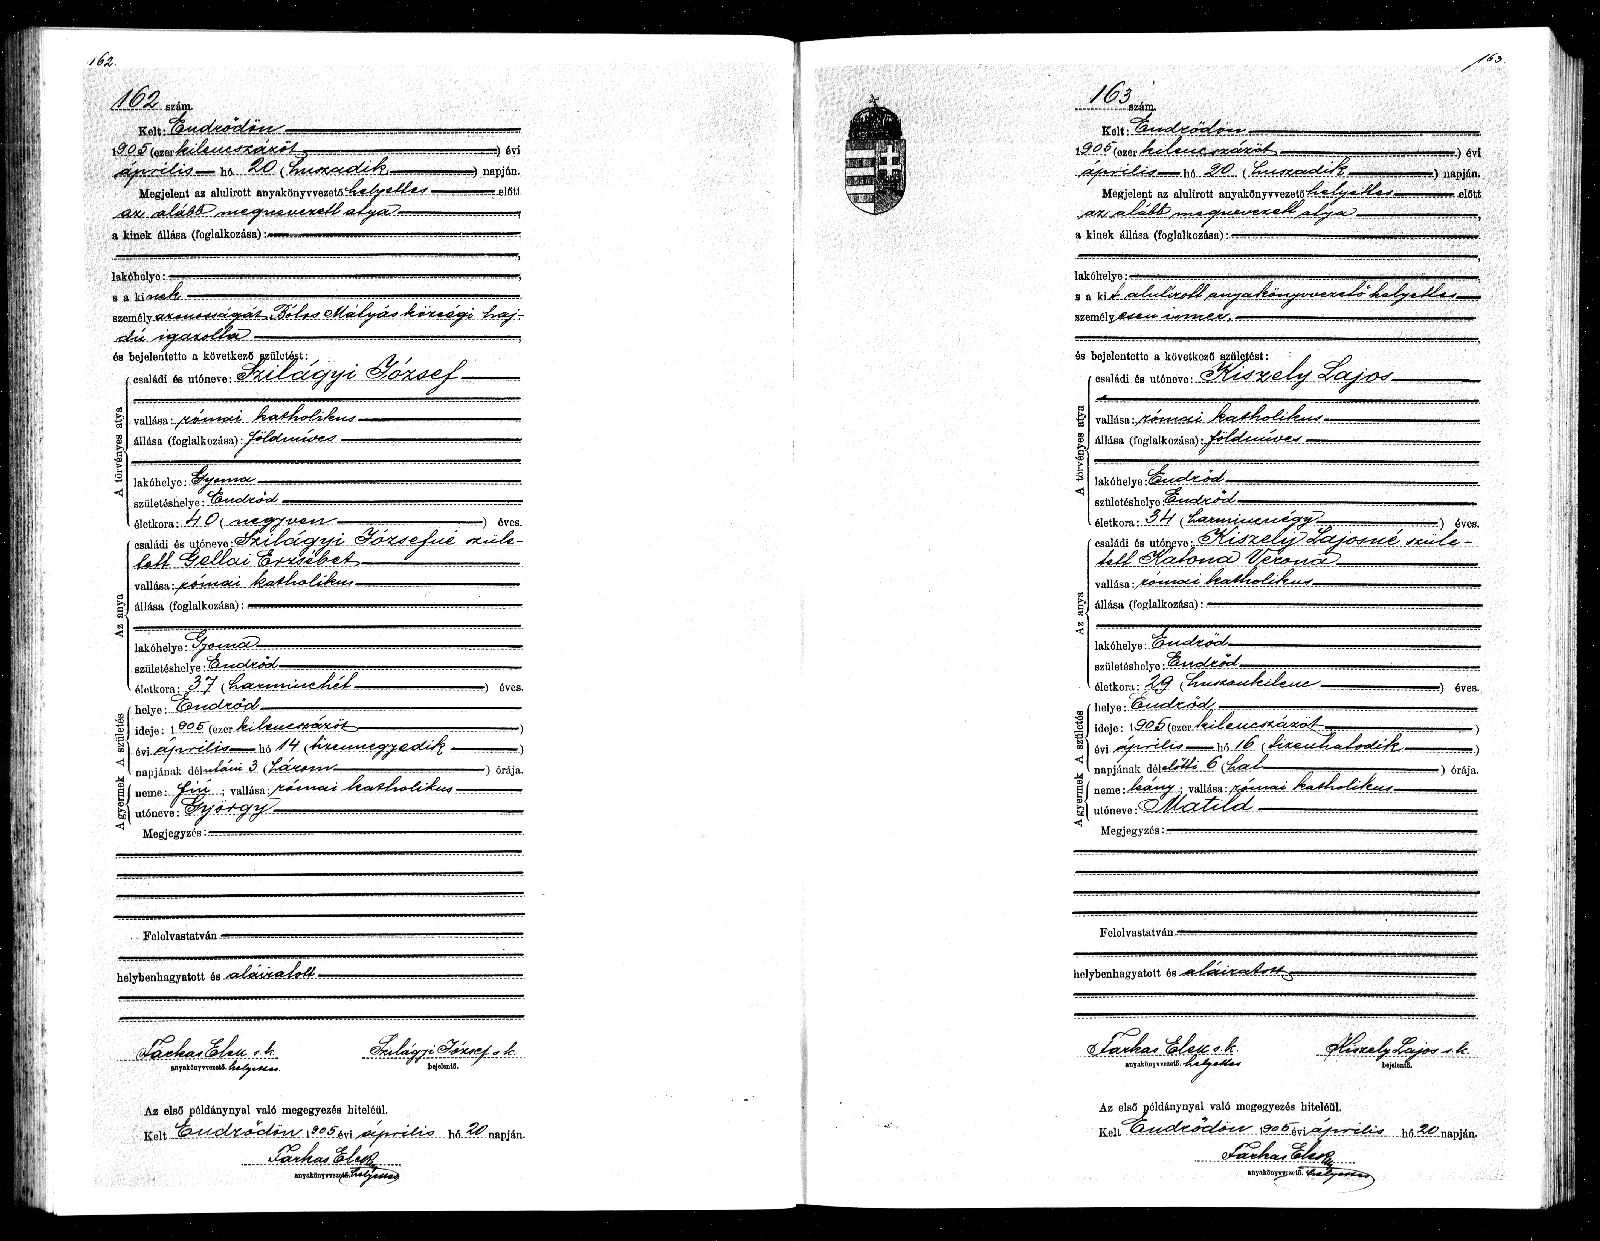 162.
162 szám.
Kelt: Endrődön
1905 (ezer kilencszázöt) évi
április hó 20 (huszadik) napján.
Megjelent az alulirott anyakönyvvezető helyettes előtt
az alább megnevezett atya,
a kinek állása (foglalkozása):
lakóhelye:
s a kinek
személyazonosságát Tólos Mátyás községi haj-
dú igazolta,
és bejelentette a következő születést:
A törvényes atya
családi és utóneve: Szilágyi József
vallása: római katholikus
állása (foglalkozása): földmíves
lakóhelye: Gyoma
születéshelye: Endrőd
életkora: 40 (negyven) éves.
Az anya
családi és utóneve: Szilágyi Józsefné szüle-
tett Gellai Erzsébet
vallása: római katholikus
állása (foglalkozása):
lakóhelye: Gyoma
születéshelye: Endrőd
életkora: 37 (harminchét) éves.
A gyermek A születés
helye: Endrőd
ideje: 1905 (ezer kilencszázöt)
évi április hó 14 (tizennegyedik)
napjának délutáni 3 (három) órája.
neme: fiú; vallása: római katholikus
utóneve: György
Megjegyzés:
Felolvastatván
helybenhagyatott és aláíratott
Farkas Elek s.k. Szilágyi József s.k.
anyakönyvvezető. helyettes bejelentő.
Az első példánynyal való megegyezés hiteléül.
Kelt Endrődön 1905 évi április hó 20 napján.
Farkas Elek
anyakönyvvezető. helyettes
163.
163 szám.
Kelt: Endrődön
1905 (ezer kilencszázöt) évi
április hó 20 (huszadik) napján.
Megjelent az alulirott anyakönyvvezető helyettes előtt
az alább megnevezett atya,
a kinek állása (foglalkozása):
lakóhelye:
s a kit alulirott anyakönyvvezető helyettes
személyesen ismer,
és bejelentette a következő születést:
A törvényes atya
családi és utóneve: Kiszely Lajos
vallása: római katholikus
állása (foglalkozása): földmíves
lakóhelye: Endrőd
születéshelye: Endrőd
életkora: 34 (harmincnégy) éves.
Az anya
családi és utóneve: Kiszely Lajosné szüle-
tett Katona Verona
vallása: római katholikus
állása (foglalkozása):
lakóhelye: Endrőd
születéshelye: Endrőd
életkora: 29 (huszonkilenc) éves.
A gyermek A születés
helye: Endrőd,
ideje: 1905 (ezer kilencszázöt)
évi április hó 16 (tizenhatodik)
napjának délelőtti 6 (hat) órája.
neme: leány; vallása: római katholikus
utóneve: Matild
Megjegyzés:
Felolvastatván
helybenhagyatott és aláíratott
Farkas Elek s.k. Kiszely Lajos s.k.
anyakönyvvezető. helyettes bejelentő.
Az első példánynyal való megegyezés hiteléül.
Kelt Endrődön 1905 évi április hó 20 napján.
Farkas Elek
anyakönyvvezető. helyettes